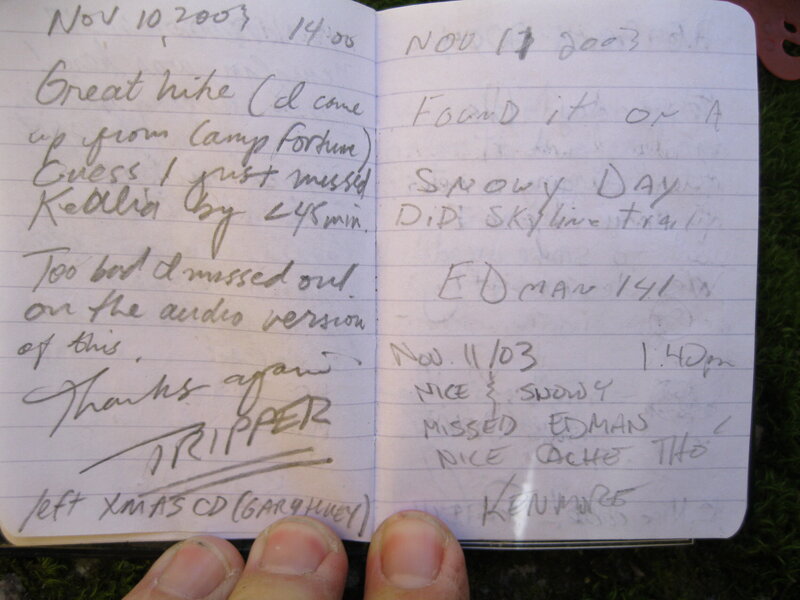 Nov 10, 2003 14:00
Great hike (I came
up from Camp Fortune)
Guess I just missed
by <45 min.
Too bad I missed out
on the audio version
of this.
Thanks again
TRIPPER
left XMAS CD
NOV 11 2003
FOUND it ON A
SNOWY DAY
DID SKYline trail
EDMAN 141
Nov. 11/03 1:40pm
NICE & SNOWY
MISSED EDMAN
NICE CACHE THO'
KENMORE